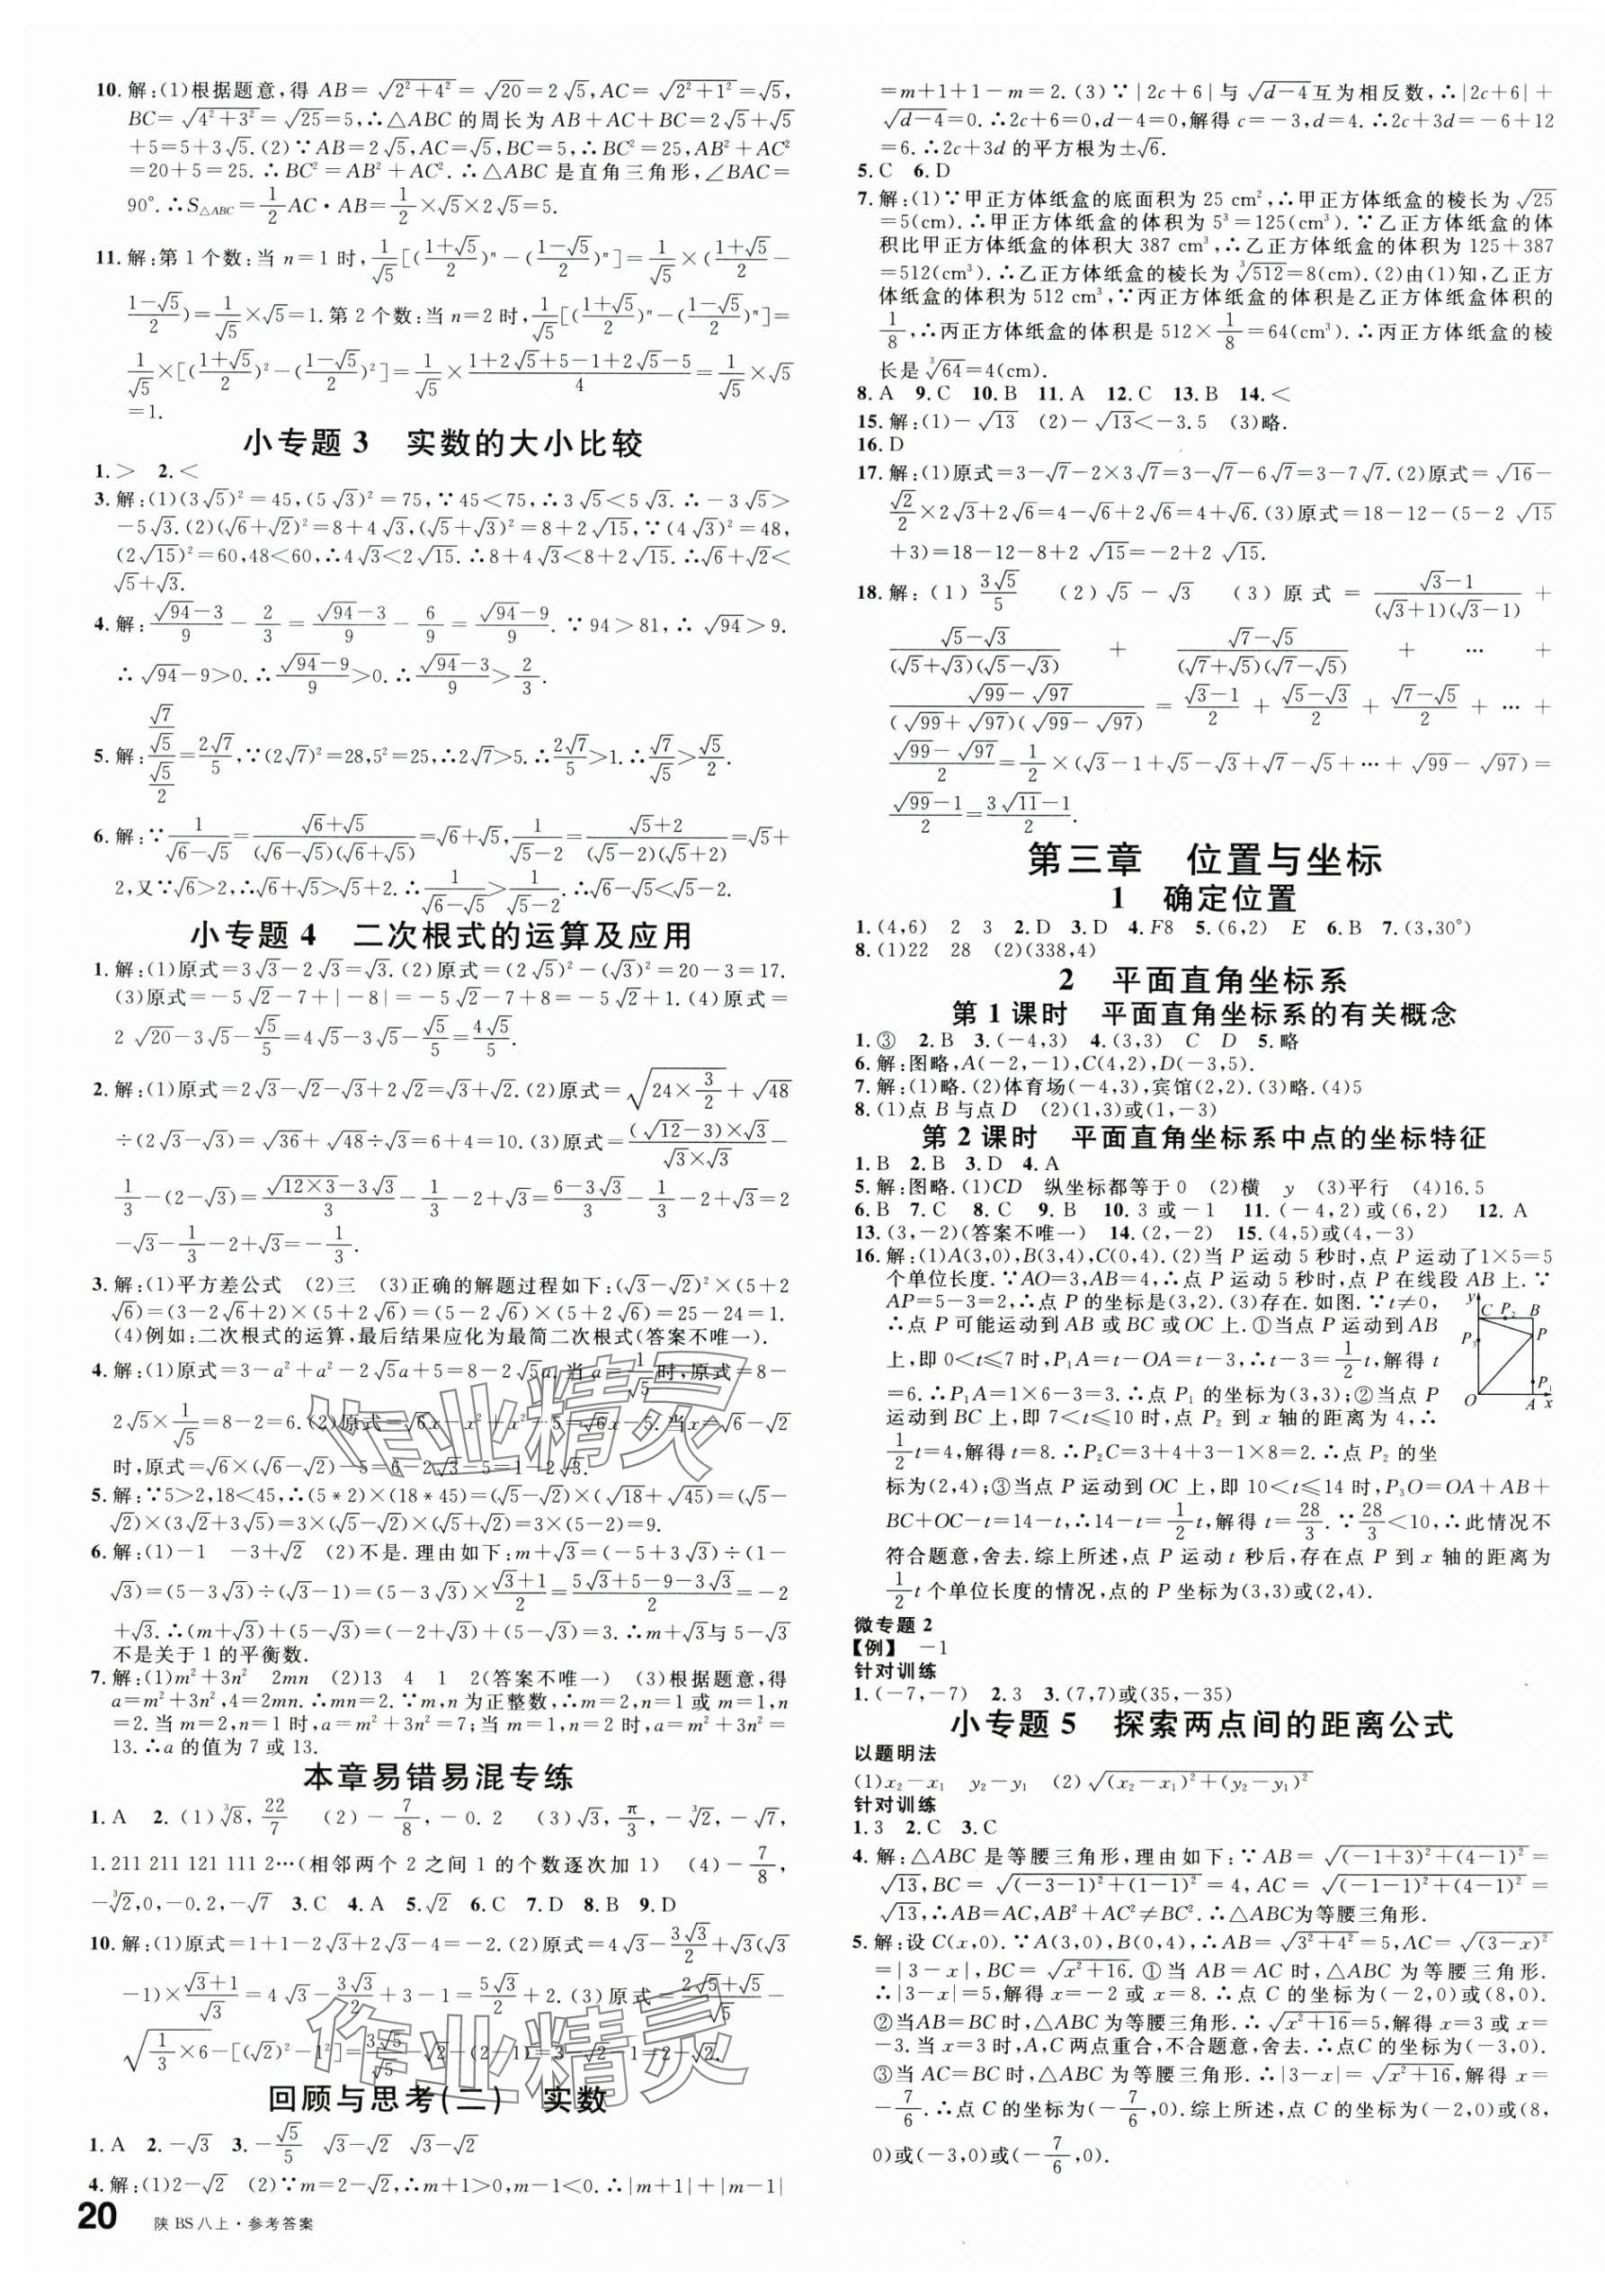 10.解:(1)根据题意,得 AB=√(2²+4²)=√20=2√5,AC=√(2²+1²)=√5,
BC=√(4²+3²)=√25=5,∴△ABC 的周长为 AB+AC+BC=2√5+√5
+5=5+3√5.(2)∵AB=2√5,AC=√5,BC=5,∴BC²=25,AB²+AC²
=20+5=25.∴BC²=AB²+AC².∴△ABC 是直角三角形,∠BAC=
90°.∴S△ABC=1/2AC·AB=1/2×√5×2√5=5.
11.解:第1个数:当 n=1 时,1/√5[((1+√5)/2)ⁿ-((1-√5)/2)ⁿ]=1/√5×((1+√5)/2-
(1-√5)/2)=1/√5×√5=1.第2个数:当 n=2 时,1/√5[((1+√5)/2)ⁿ-((1-√5)/2)ⁿ]=
1/√5×[((1+√5)/2)²-((1-√5)/2)²]=1/√5×(1+2√5+5-1+2√5-5)/4=1/√5×√5
=1.
小专题3 实数的大小比较
1.> 2.<
3.解:(1)(3√5)²=45,(5√3)²=75,∵45<75,∴3√5<5√3.∴-3√5>
-5√3.(2)(√6+√2)²=8+4√3,(√5+√3)²=8+2√15,∵(4√3)²=48,
(2√15)²=60,48<60,∴4√3<2√15.∴8+4√3<8+2√15.∴√6+√2<
√5+√3.
4.解:(√94-3)/9-2/3=(√94-3)/9-6/9=(√94-9)/9.∵94>81,∴√94>9.
∴√94-9>0.∴(√94-9)/9>0.∴(√94-3)/9>2/3.
5.解:(√7/√5)/(√5/2)=2√7/5,∵(2√7)²=28,5²=25,∴2√7>5.∴2√7/5>1.∴√7/√5>√5/2.
6.解:∵1/(√6-√5)=(√6+√5)/((√6-√5)(√6+√5))=√6+√5,1/(√5-2)=(√5+2)/((√5-2)(√5+2))=√5+
2,又∵√6>2,∴√6+√5>√5+2.∴1/(√6-√5)>1/(√5-2).∴√6-√5<√5-2.
小专题4 二次根式的运算及应用
1.解:(1)原式=3√3-2√3=√3.(2)原式=(2√5)²-(√3)²=20-3=17.
(3)原式=-5√2-7+|-8|=-5√2-7+8=-5√2+1.(4)原式=
2√20-3√5-√5/5=4√5-3√5-√5/5=4√5/5.
2.解:(1)原式=2√3-√2-√3+2√2=√3+√2.(2)原式=√(24×3/2)+√48
÷(2√3-√3)=√36+√48÷√3=6+4=10.(3)原式=(√12-3)×√3/(√3×√3)-
1/3-(2-√3)=(√(12×3)-3√3)/3-1/3-2+√3=(6-3√3)/3-1/3-2+√3=2
-√3-1/3-2+√3=-1/3.
3.解:(1)平方差公式 (2)三 (3)正确的解题过程如下:(√3-√2)²×(5+2
√6)=(3-2√6+2)×(5+2√6)=(5-2√6)×(5+2√6)=25-24=1.
(4)例如:二次根式的运算,最后结果应化为最简二次根式(答案不唯一).
4.解:(1)原式=3-a²+a²-2√5a+5=8-2√5a.当 a=1/√5时,原式=8-
2√5×1/√5=8-2=6.(2)原式=√6x-x²+x²-5=√6x-5.当 x=√6-√2
时,原式=√6×(√6-√2)-5=6-2√3-5=1-2√3.
5.解:∵5>2,18<45,∴(5*2)×(18*45)=(√5-√2)×(√18+√45)=(√5-
√2)×(3√2+3√5)=3×(√5-√2)×(√5+√2)=3×(5-2)=9.
6.解:(1)-1 -3+√2 (2)不是.理由如下:m+√3=(-5+3√3)÷(1-
√3)=(5-3√3)÷(√3-1)=(5-3√3)×(√3+1)/2=(5√3+5-9-3√3)/2=-2
+√3.∴(m+√3)+(5-√3)=(-2+√3)+(5-√3)=3.∴m+√3与5-√3
不是关于1的平衡数.
7.解:(1)m²+3n² 2mn (2)13 4 1 2(答案不唯一) (3)根据题意,得
a=m²+3n²,4=2mn.∴mn=2.∵m,n 为正整数,∴m=2,n=1 或 m=1,n
=2.当 m=2,n=1 时,a=m²+3n²=7;当 m=1,n=2 时,a=m²+3n²=
13.∴a 的值为7或13.
本章易错易混专练
1.A 2.(1)∛8,22/7 (2)-7/8,-0.2 (3)√3,π/3,-∛2,-√7,
1.211 211 121 111 2…(相邻两个2之间1的个数逐次加1) (4)-7/8,
-∛2,0,-0.2,-√7 3.C 4.A 5.√2 6.C 7.D 8.B 9.D
10.解:(1)原式=1+1-2√3+2√3-4=-2.(2)原式=4√3-3√3/2+√3(√3
-1)×(√3+1)/√3=4√3-3√3/2+3-1=5√3/2+2.(3)原式=(2√5+√5)/√5-
√(1/3×6)-[(√2)²-1²]=3√5/√5-√2-(2-1)=3-√2-1=2-√2.
回顾与思考(二) 实数
1.A 2.-√3 3.-√5/5 √3-√2 √3-√2
4.解:(1)2-√2 (2)∵m=2-√2,∴m+1>0,m-1<0.∴|m+1|+|m-1|
20 陕 BS八上·参考答案
=m+1+1-m=2.(3)∵|2c+6|与√(d-4)互为相反数,∴|2c+6|+
√(d-4)=0.∴2c+6=0,d-4=0,解得 c=-3,d=4.∴2c+3d=-6+12
=6.∴2c+3d 的平方根为±√6.
5.C 6.D
7.解:(1)∵甲正方体纸盒的底面积为25 cm²,∴甲正方体纸盒的棱长为√25
=5(cm).∴甲正方体纸盒的体积为5³=125(cm³).∵乙正方体纸盒的体
积比甲正方体纸盒的体积大387 cm³,∴乙正方体纸盒的体积为125+387
=512(cm³).∴乙正方体纸盒的棱长为∛512=8(cm).(2)由(1)知,乙正方
体纸盒的体积为512 cm³,∵丙正方体纸盒的体积是乙正方体纸盒体积的
1/8,∴丙正方体纸盒的体积是512×1/8=64(cm³).∴丙正方体纸盒的棱
长是∛64=4(cm).
8.A 9.C 10.B 11.A 12.C 13.B 14.<
15.解:(1)-√13 (2)-√13<-3.5 (3)略.
16.D
17.解:(1)原式=3-√7-2×3√7=3-√7-6√7=3-7√7.(2)原式=√16-
√2/2×2√3+2√6=4-√6+2√6=4+√6.(3)原式=18-12-(5-2√15
+3)=18-12-8+2√15=-2+2√15.
18.解:(1)3√5/5 (2)√5-√3 (3)原式=(√3-1)/((√3+1)(√3-1))+
(√5-√3)/((√5+√3)(√5-√3))+(√7-√5)/((√7+√5)(√7-√5))+…+
(√99-√97)/((√99+√97)(√99-√97))=(√3-1)/2+(√5-√3)/2+(√7-√5)/2+…+
(√99-√97)/2=1/2×(√3-1+√5-√3+√7-√5+…+√99-√97)=
(√99-1)/2=(3√11-1)/2.
第三章 位置与坐标
1 确定位置
1.(4,6) 2 3 2.D 3.D 4.F8 5.(6,2) E 6.B 7.(3,30°)
8.(1)22 28 (2)(338,4)
2 平面直角坐标系
第1课时 平面直角坐标系的有关概念
1.③ 2.B 3.(-4,3) 4.(3,3) C D 5.略
6.解:图略,A(-2,-1),C(4,2),D(-3,5).
7.解:(1)略.(2)体育场(-4,3),宾馆(2,2).(3)略.(4)5
8.(1)点 B 与点 D (2)(1,3)或(1,-3)
第2课时 平面直角坐标系中点的坐标特征
1.B 2.B 3.D 4.A
5.解:图略.(1)CD 纵坐标都等于0 (2)横 y (3)平行 (4)16.5
6.B 7.C 8.C 9.B 10.3或-1 11.(-4,2)或(6,2) 12.A
13.(3,-2)(答案不唯一) 14.(2,-2) 15.(4,5)或(4,-3)
16.解:(1)A(3,0),B(3,4),C(0,4).(2)当 P 运动5秒时,点 P 运动了1×5=5
个单位长度.∵AO=3,AB=4,∴点 P 运动5秒时,点 P 在线段 AB 上.∵
AP=5-3=2,∴点 P 的坐标是(3,2).(3)存在.如图.∵t≠0,
∴点 P 可能运动到 AB 或 BC 或 OC 上.①当点 P 运动到 AB
上,即 0<t≤7 时,P₁A=t-OA=t-3,∴t-3=1/2t,解得 t
=6.∴P₁A=1×6-3=3.∴点 P₁ 的坐标为(3,3);②当点 P
运动到 BC 上,即 7<t≤10 时,点 P₂ 到 x 轴的距离为4,∴
1/2t=4,解得 t=8.∴P₂C=3+4+3-1×8=2.∴点 P₂ 的坐
标为(2,4);③当点 P 运动到 OC 上,即 10<t≤14 时,P₃O=OA+AB+
BC+OC-t=14-t,∴14-t=1/2t,解得 t=28/3.∵28/3<10,∴此情况不
符合题意,舍去.综上所述,点 P 运动 t 秒后,存在点 P 到 x 轴的距离为
1/2t 个单位长度的情况,点的 P 坐标为(3,3)或(2,4).
y C P₂ B P₃ P P₁ O A x
微专题2
【例】 -1
针对训练
1.(-7,-7) 2.3 3.(7,7)或(35,-35)
小专题5 探索两点间的距离公式
以题明法
(1)x₂-x₁ y₂-y₁ (2)√((x₂-x₁)²+(y₂-y₁)²)
针对训练
1.3 2.C 3.C
4.解:△ABC 是等腰三角形,理由如下:∵AB=√((-1+3)²+(4-1)²)=
√13,BC=√((-3-1)²+(1-1)²)=4,AC=√((-1-1)²+(4-1)²)=
√13,∴AB=AC,AB²+AC²≠BC².∴△ABC为等腰三角形.
5.解:设 C(x,0).∵A(3,0),B(0,4),∴AB=√(3²+4²)=5,AC=√((3-x)²)
=|3-x|,BC=√(x²+16).①当 AB=AC 时,△ABC 为等腰三角形.
∴|3-x|=5,解得 x=-2 或 x=8.∴点 C 的坐标为(-2,0)或(8,0).
②当AB=BC时,△ABC为等腰三角形.∴√(x²+16)=5,解得 x=3 或 x=
-3.当 x=3 时,A,C 两点重合,不合题意,舍去.∴点C的坐标为(-3,0).
③当 AC=BC 时,△ABC 为等腰三角形.∴|3-x|=√(x²+16),解得 x=
-7/6.∴点 C 的坐标为(-7/6,0).综上所述,点 C 的坐标为(-2,0)或(8,
0)或(-3,0)或(-7/6,0).
作业精灵
作业精灵